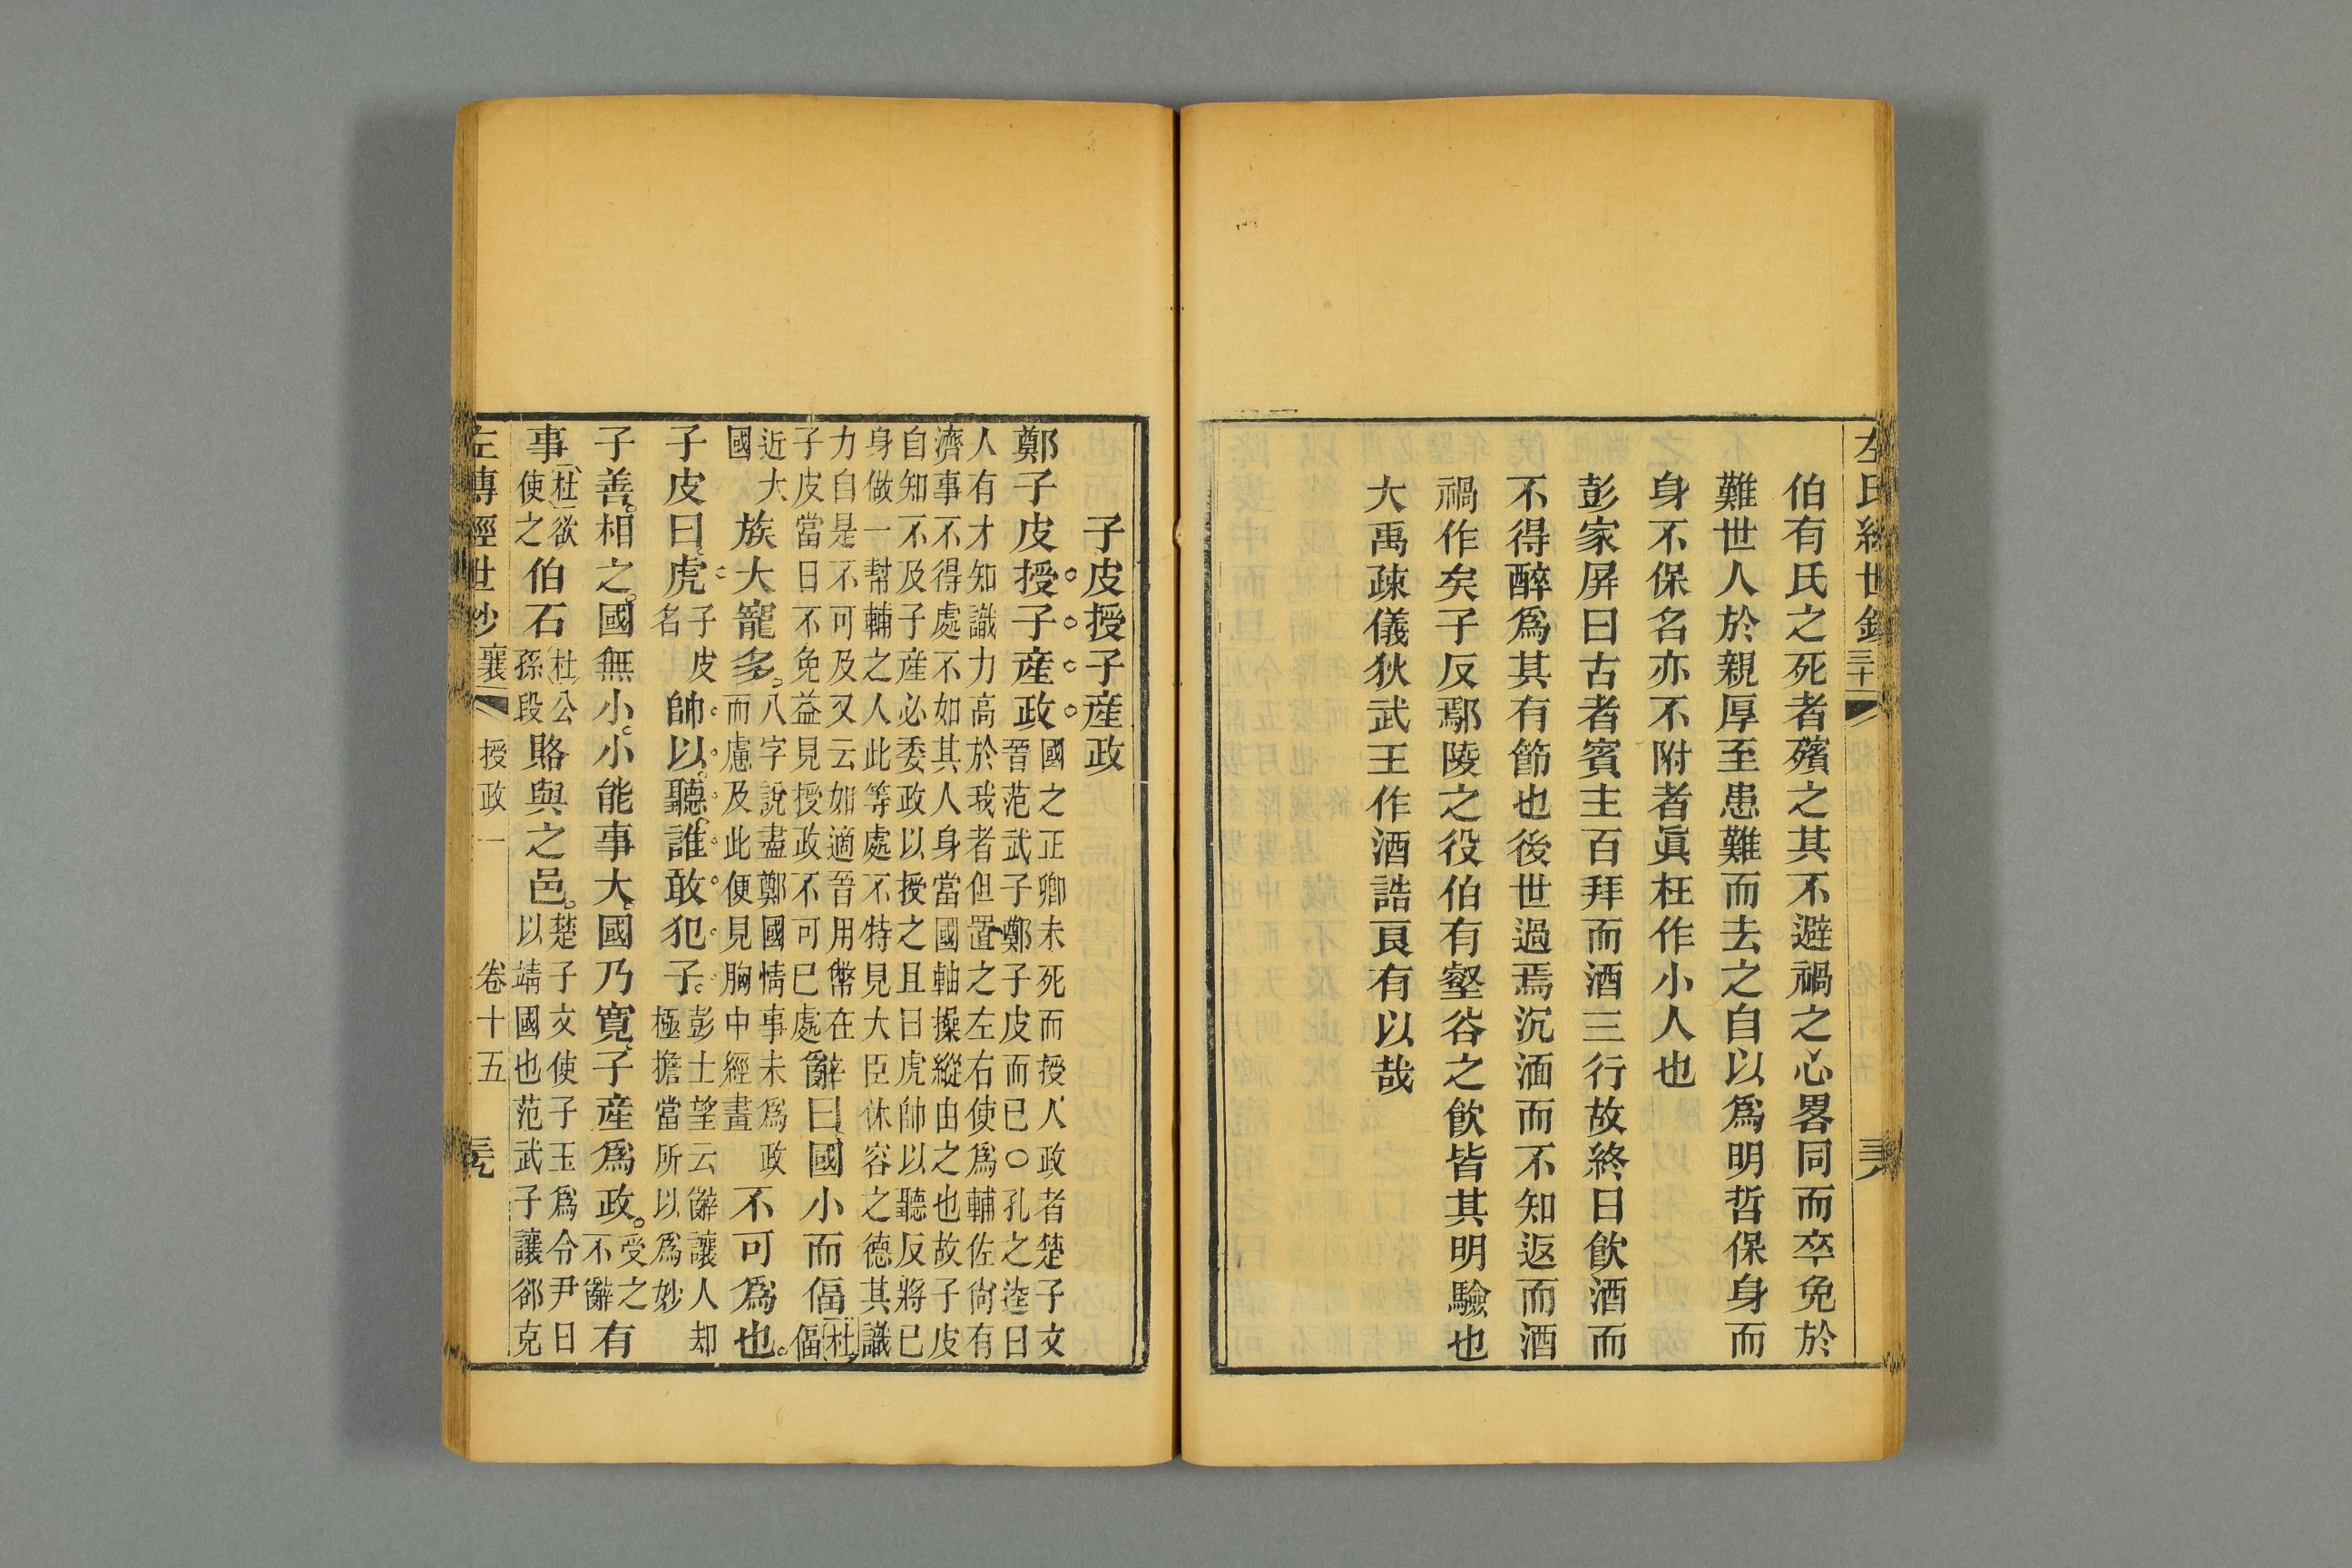 左氏經世鈔 三十
伯有氏之死者殯之其不避禍之心畧同而卒免於
難世人於親厚至患難而去之自以爲明哲保身而
身不保名亦不附者眞枉作小人也
彭家屏曰古者賓主百拜而酒三行故終日飮酒而
不得醉爲其有節也後世過焉沉湎而不知返而酒
禍作矣子反鄢陵之役伯有壑谷之飮皆其明驗也
大禹疎儀狄武王作酒誥良有以哉
子皮授子産政
鄭子皮授子産政
國之正卿未死而授人政者楚子文
晉范武子鄭子皮而已○孔之逵曰
人有才知識力高於我者但置之左右使爲輔佐尙有
濟事不得處不如其人身當國軸操縱由之也故子皮
自知不及子産必委政以授之且曰虎帥以聽反將已
身做一幇輔之人此等處不特見大臣休容之德其識
力自是不可及又云如適晉用幣在
子皮當日不免益見授政不可已處
辭曰國小而偪
杜
偪
近大
國
族大寵多
八字說盡鄭國情事未爲政
而慮及此便見胸中經畫
不可爲也
子皮曰虎
子皮
名
帥以聽誰敢犯子
彭士望云辭讓人却
極擔當所以爲妙
子善相之國無小小能事大國乃寬子産爲政
受之
不辭
有
事
杜欲
使之
伯石
杜公
孫段
賂與之邑
楚子文使子玉爲令尹曰
以靖國也范武子讓郤克
左傳經世鈔 襄 授政 一 卷十五